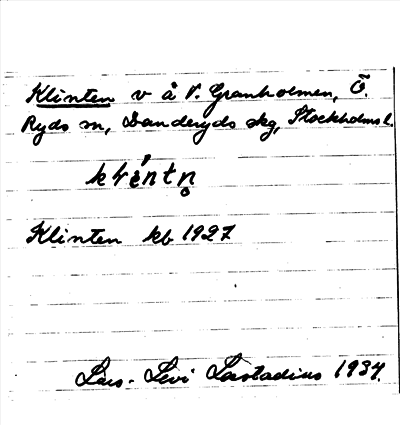 Klinten v å V. Granholmen, Ö.
Ryds sn, Danderyds skg, Stockholms l.
Klinten kb 1927
Lars-Levi Læstadius 1934.